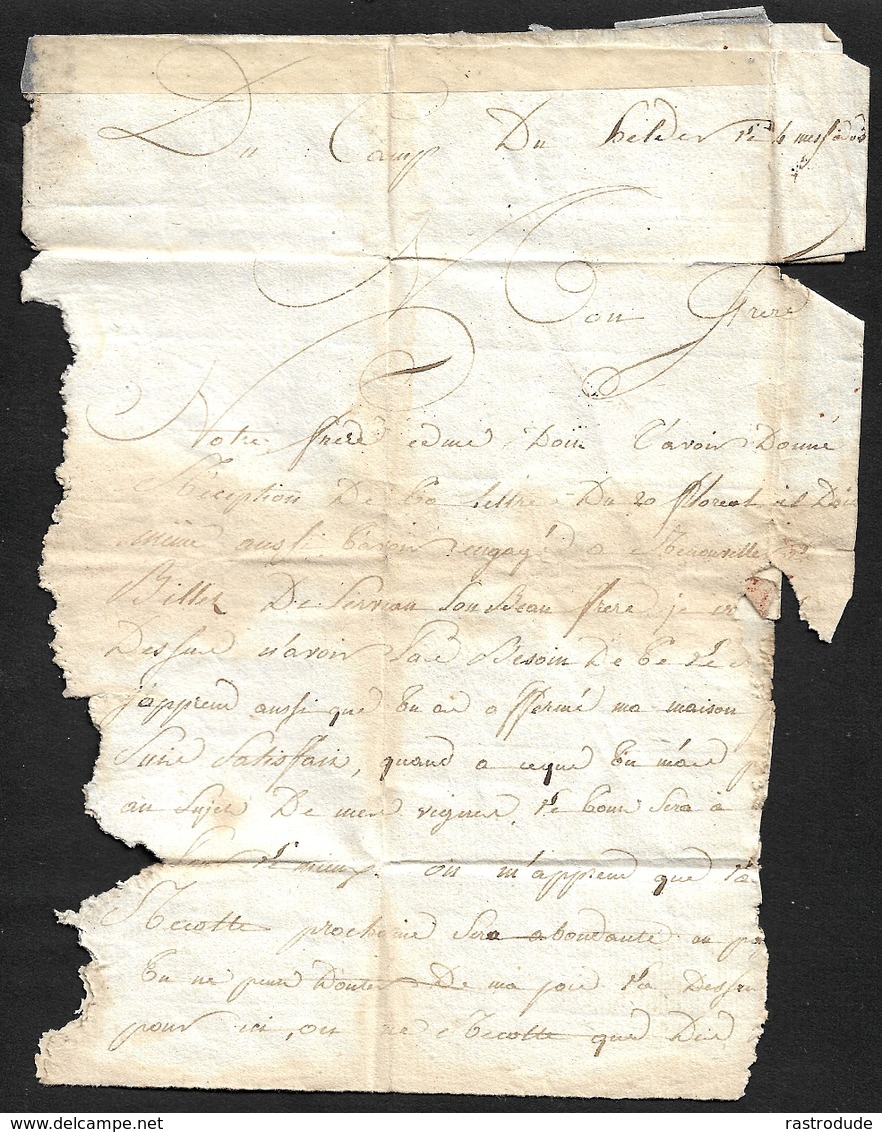 Du Camp Du helder le 4 messidor
Mon frere
Notre frere edme Doit t'avoir Donné
Réception De ta lettre Du 20 floreal il Doit
même aussi t'avoir engagé a Renouveller le
Billet De Servian Son Beau frere je
Dessus n'avoir pas Besoin De te le
j'apprend aussi que tu as affermé ma maison
Suis Satisfait, quand a ceque tu m'as
au Sujet De mes vignes, le tout Sera
le mieux. on m'apprend que la
Recotte prochaine Sera abondante au
tu ne peux Douter De ma joie la Dessus
pour ici, on ne Recotte que Des
delcampe.net
rastrodude